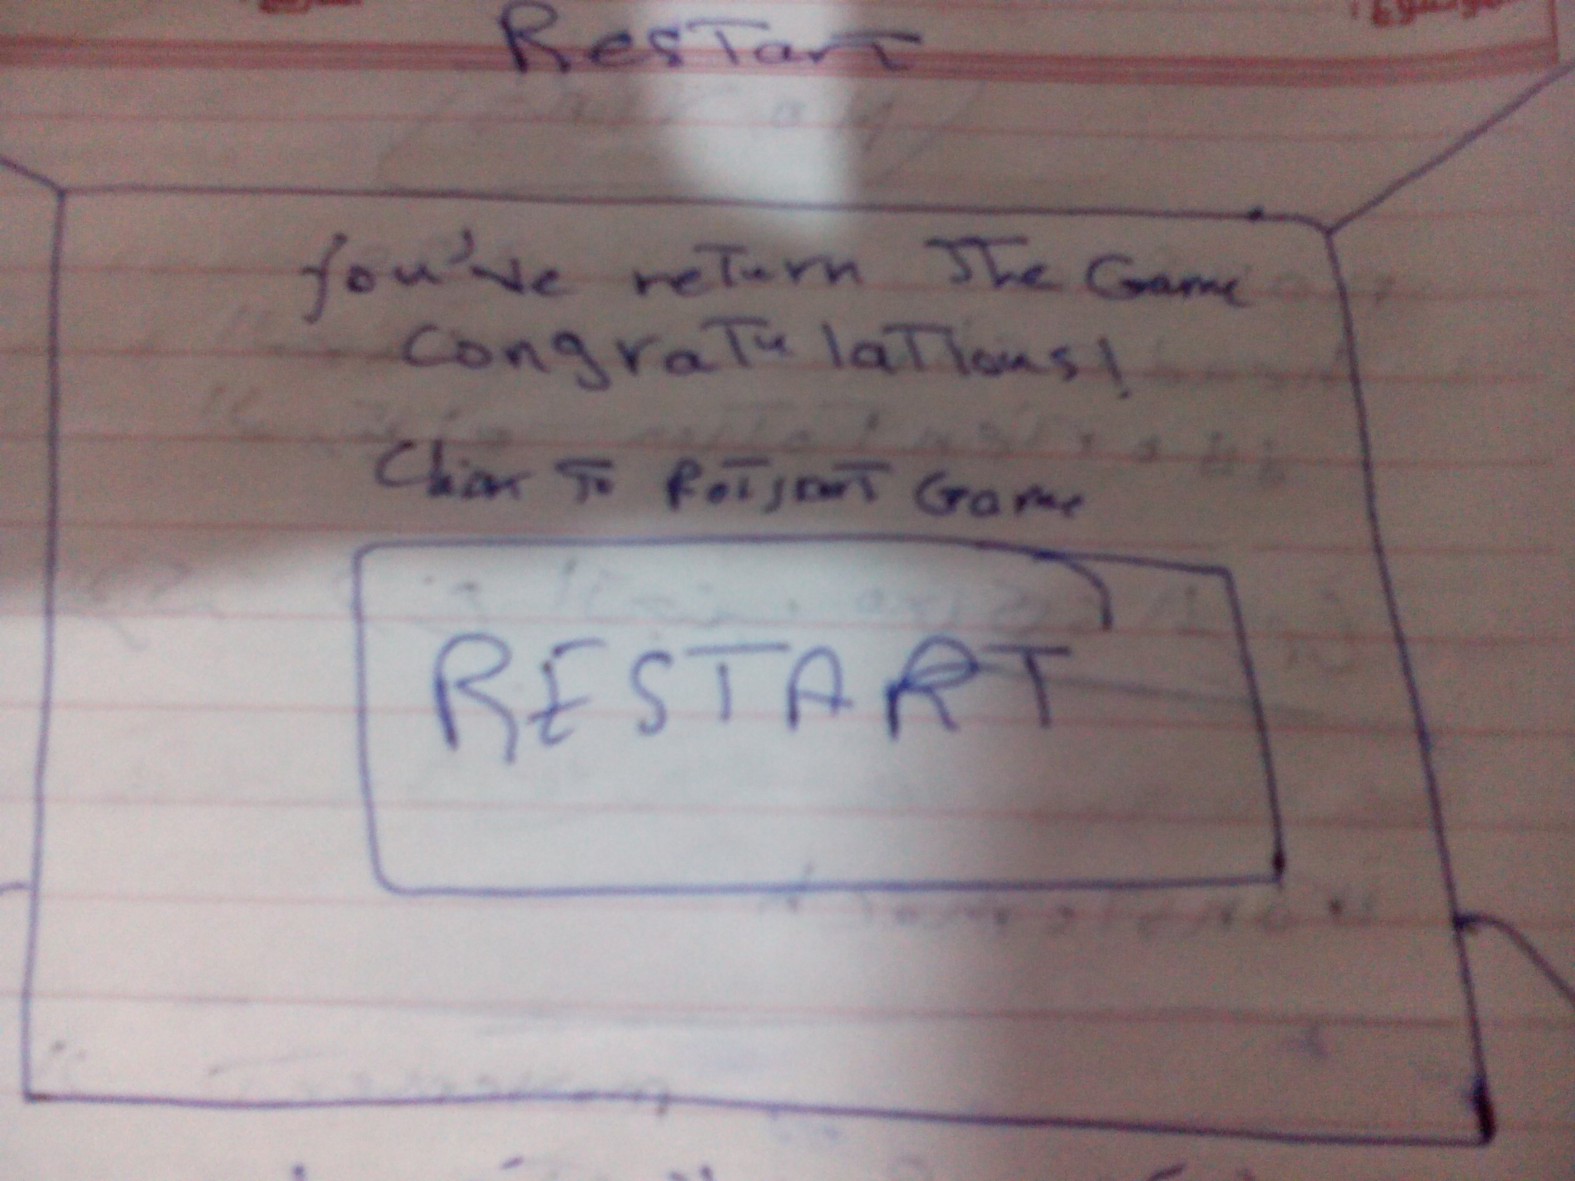 Restart
You've return The Game
congratulations!
To Game
RESTART